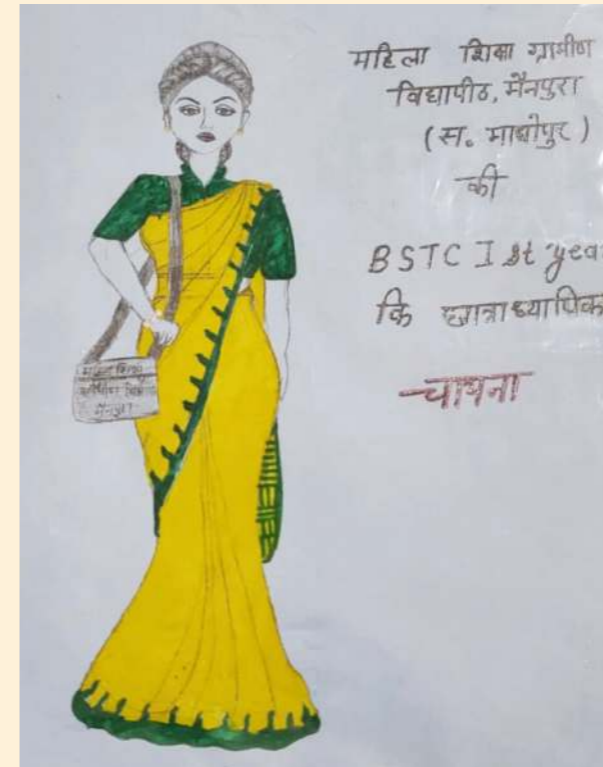 महिला शिक्षा ग्रामीण
विद्यापीठ, मैनपुरा
(स॰ माधोपुर)
की
BSTC I st year
कि छात्राध्यापिका
महिला शिक्षा
ग्रामीण विद्या
मैनपुरा